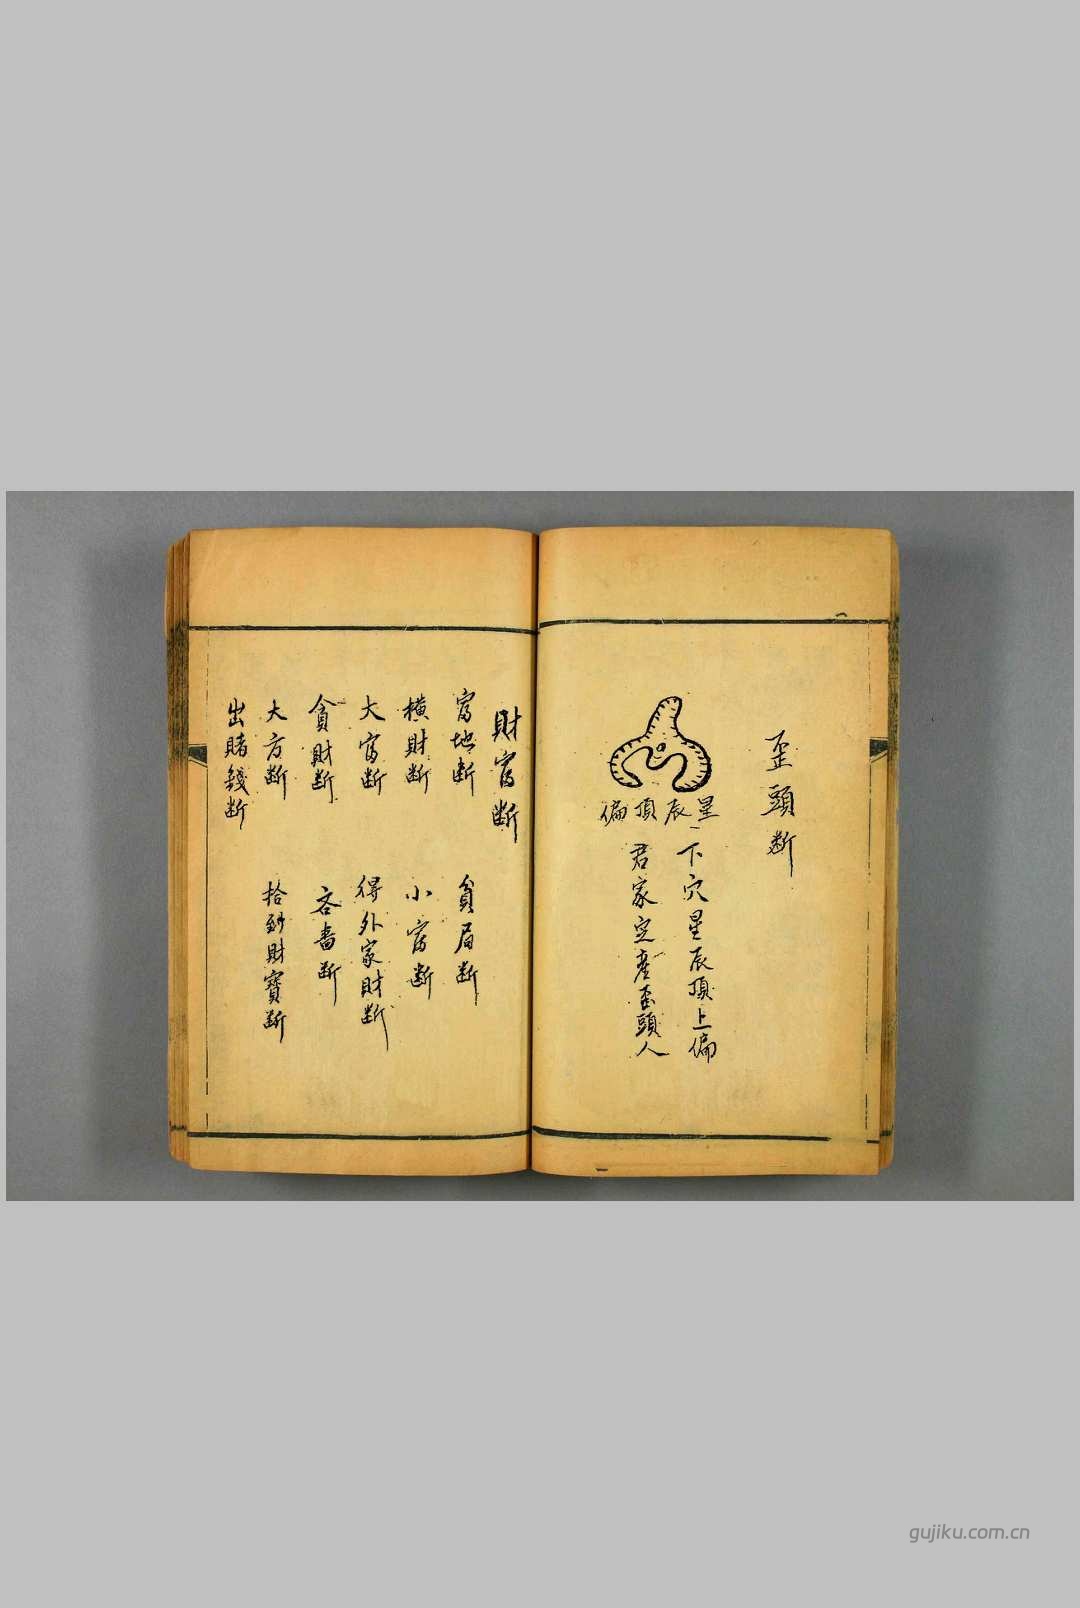 歪頭斷
星辰頂偏
下穴星辰頂上偏
君家定產歪頭人
財富斷
富地斷
貧局斷
橫財斷
小富斷
大富斷
得外家財斷
貪財斷
吝嗇斷
大方斷
拾到財寶斷
出賭錢斷
gujiku.com.cn